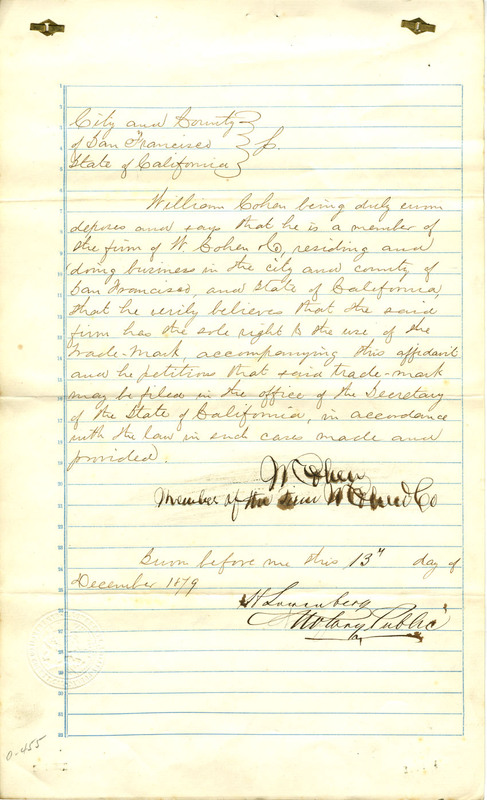 City and County
of San Francisco } ss.
State of California
William Cohen being duly sworn
deposes and says that he is a member of
the firm of W. Cohen & Co, residing and
doing business in the city and county of
San Francisco, and State of California,
that he verily believes that the said
firm has the sole right to the use of the
Trade-Mark, accompanying this affidavit
and he petitions that said trade-mark
may be filed in the office of the Secretary
of the State of California, in accordance
with the law in such cases made and
provided.
W Cohen
Member of the firm W Cohen & Co
Sworn before me this 13" day of
December 1879
H Lowenberg
Notary Public
0-455